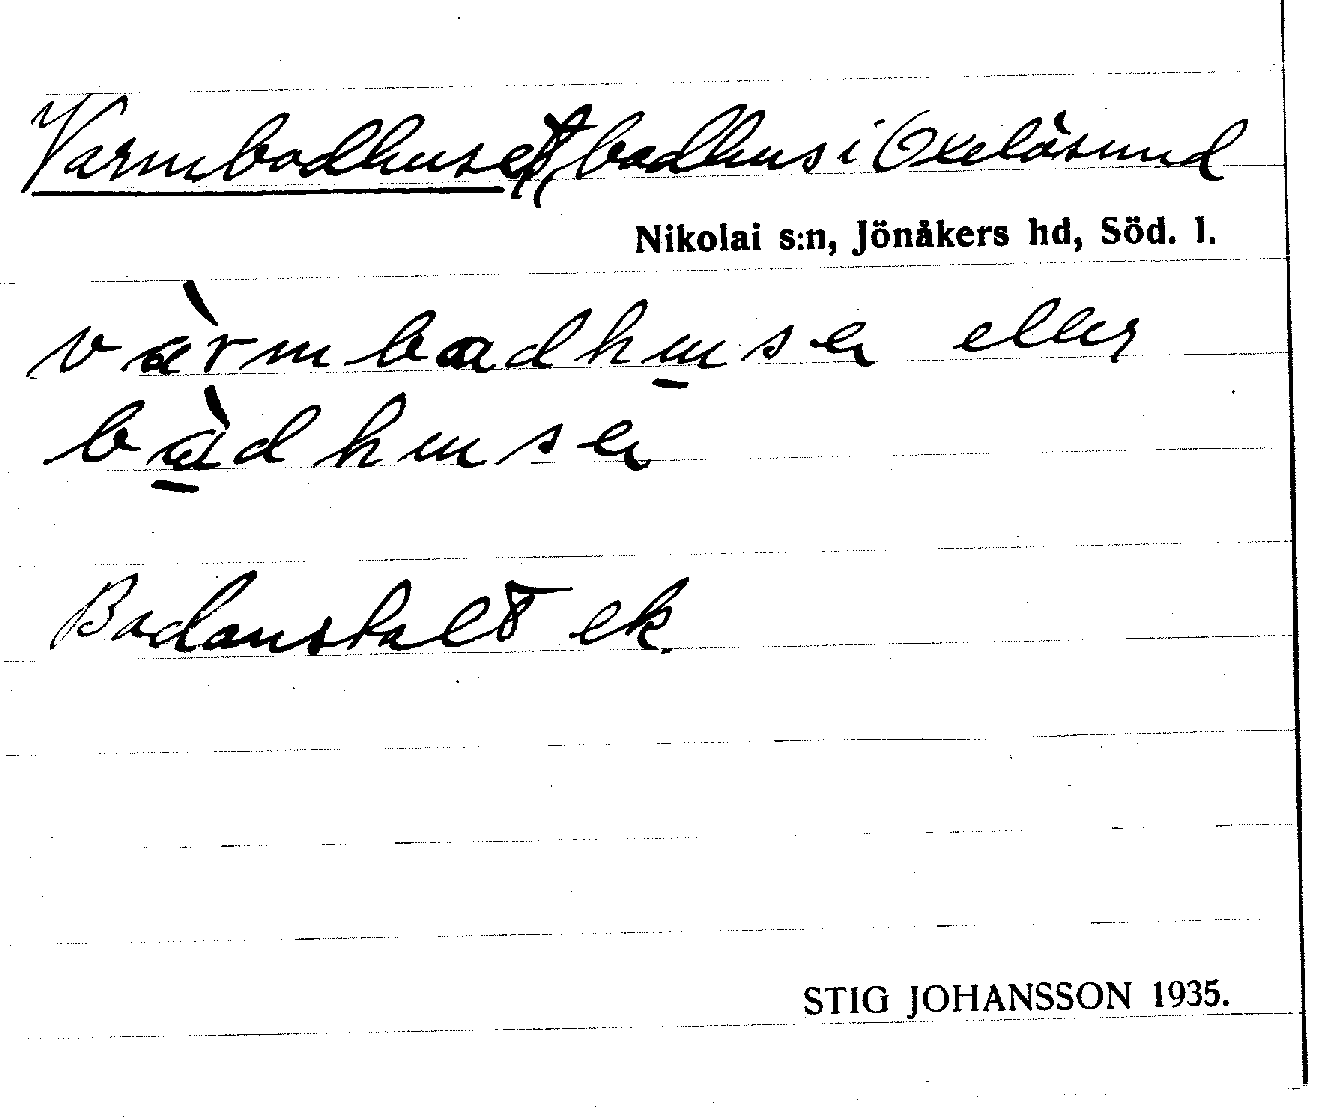 Varmbadhuset, badhus i Oxelösund
Nikolai s:n, Jönåkers hd, Söd. l.
vàrmbadhu̲se eller
bà̲dhuse
Badanstalt ek.
STIG JOHANSSON 1935.